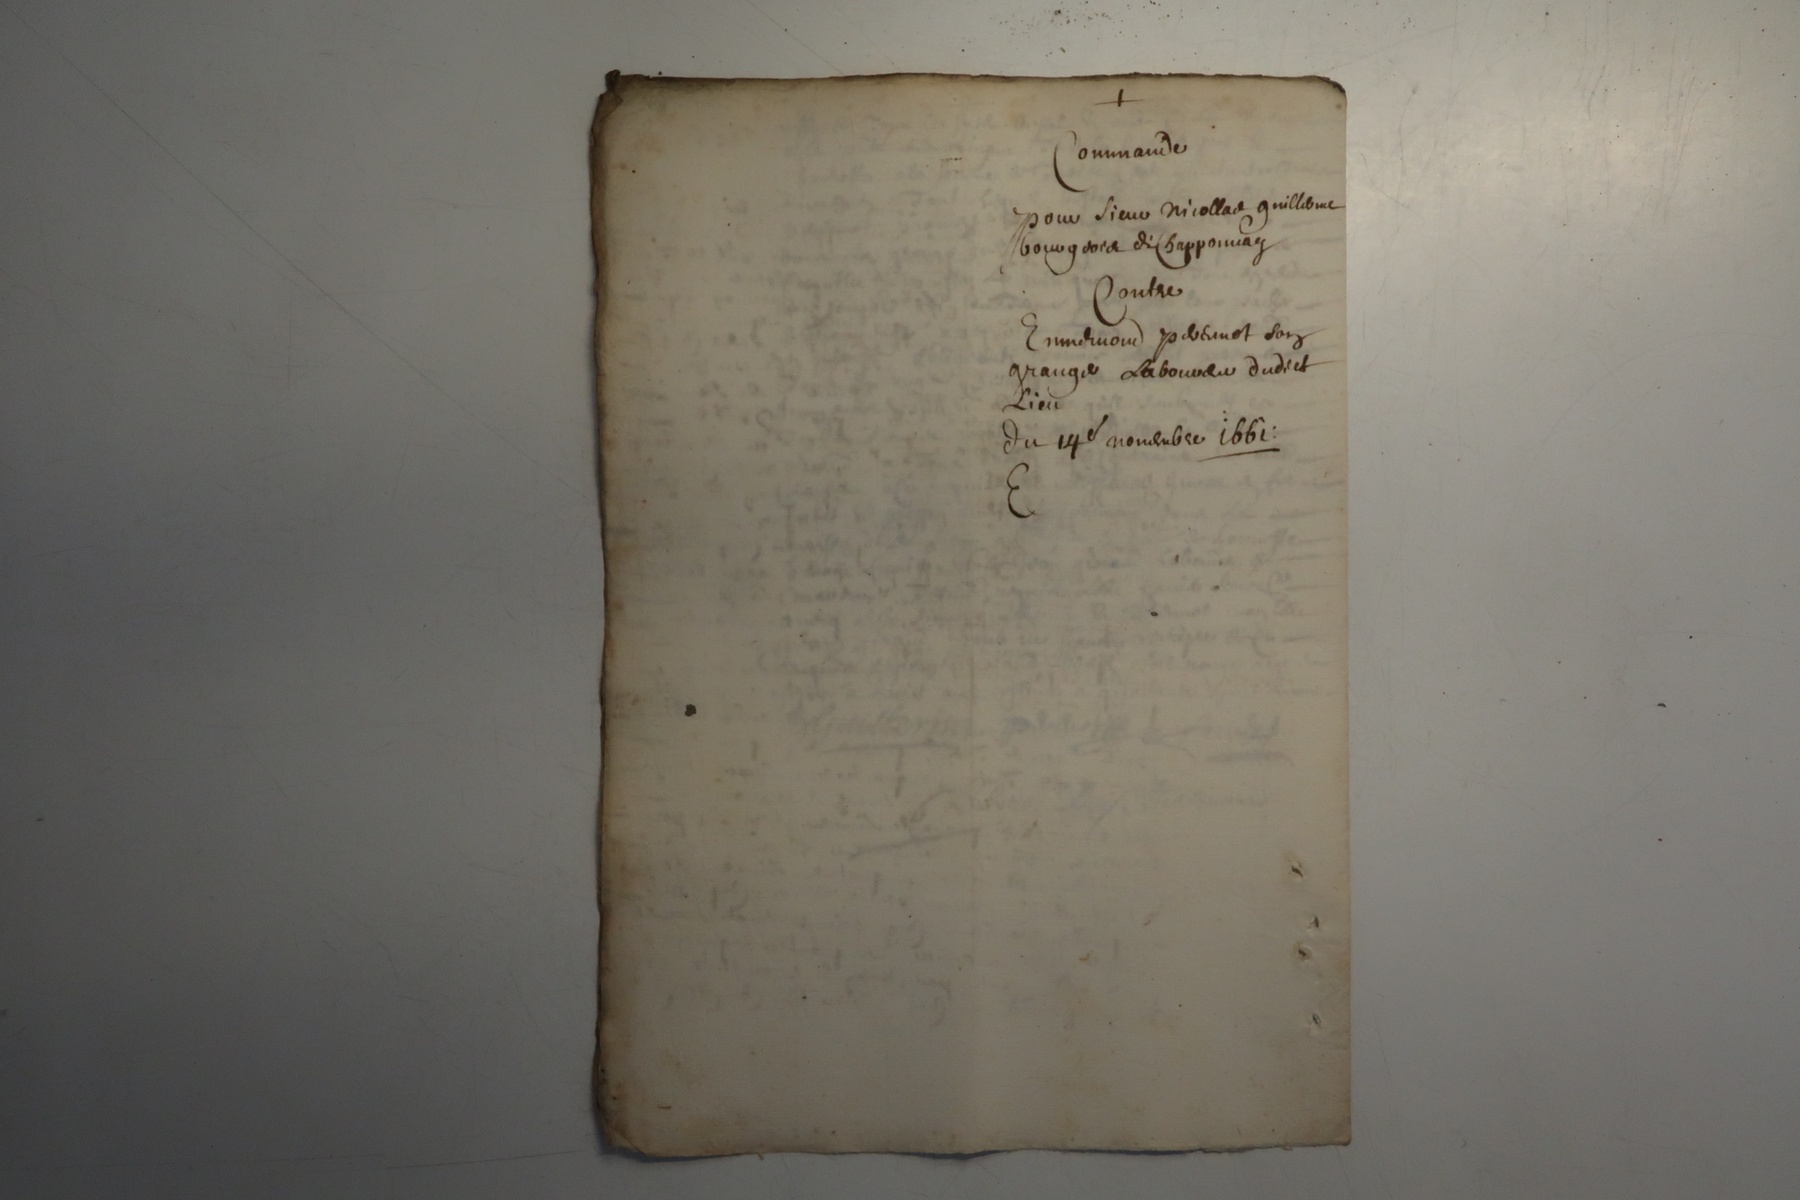 +
Commande
pour sieur Nicollas guillerme
bourgeois de Chapponnay
Contre
Ennemond pernet son
granger Laboureur dudict
Lieu
du 14e novembre 1661
E